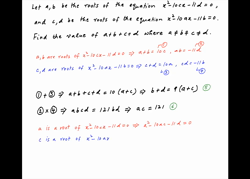 Let a,b be the roots of the equation x²-10cx-11d=0,
and c,d be the roots of the equation x²-10ax-11b=0.
Find the value of a+b+c+d when a≠b≠c≠d.
a,b are roots of x²-10cx-11d=0 ⇒ a+b=10c, ab=-11d
c,d are roots of x²-10ax-11b=0 ⇒ c+d=10a, cd=-11b
①+③ ⇒ a+b+c+d=10(a+c) ⇒ b+d=9(a+c)
②×④ ⇒ abcd=121bd ⇒ ac=121
a is a root of x²-10cx-11d=0 ⇒ a²-10ac-11d=0
c is a root of x²-10ax